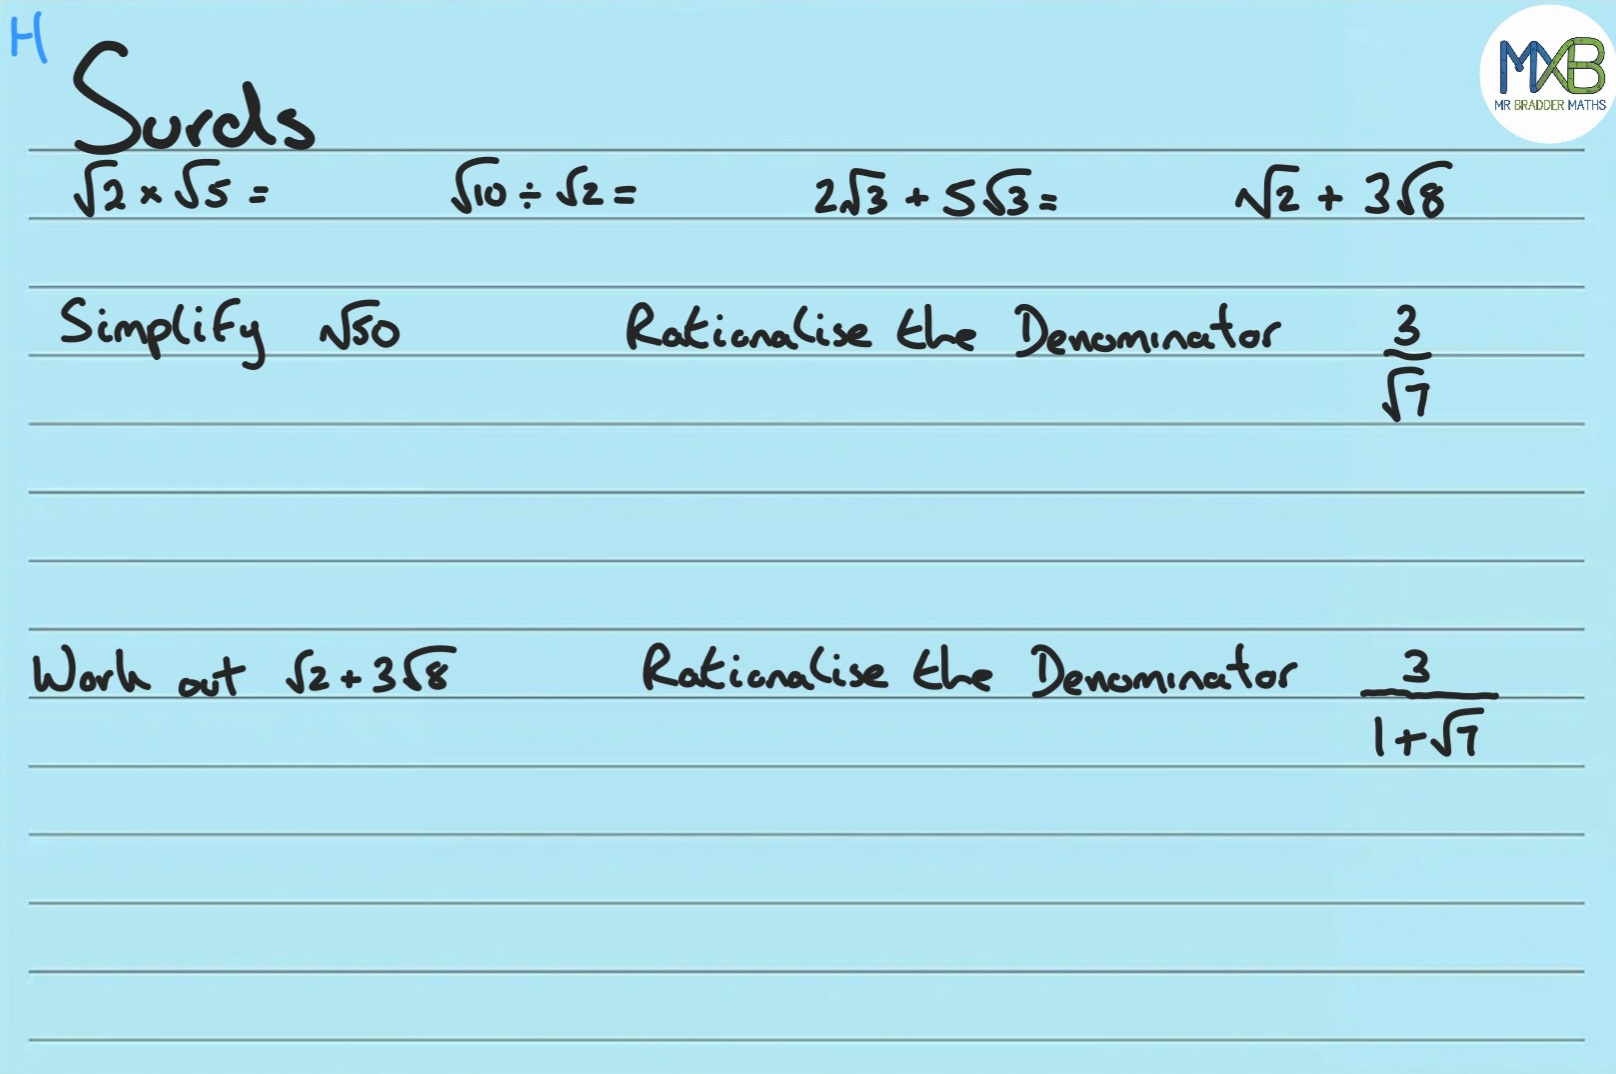 H
MXB
MR BRADDER MATHS
Surds
√2 × √5 = √10 ÷ √2 = 2√3 + 5√3 = √2 + 3√8
Simplify √50 Rationalise the Denominator 3/√7
Work out √2 + 3√8 Rationalise the Denominator 3/(1+√7)